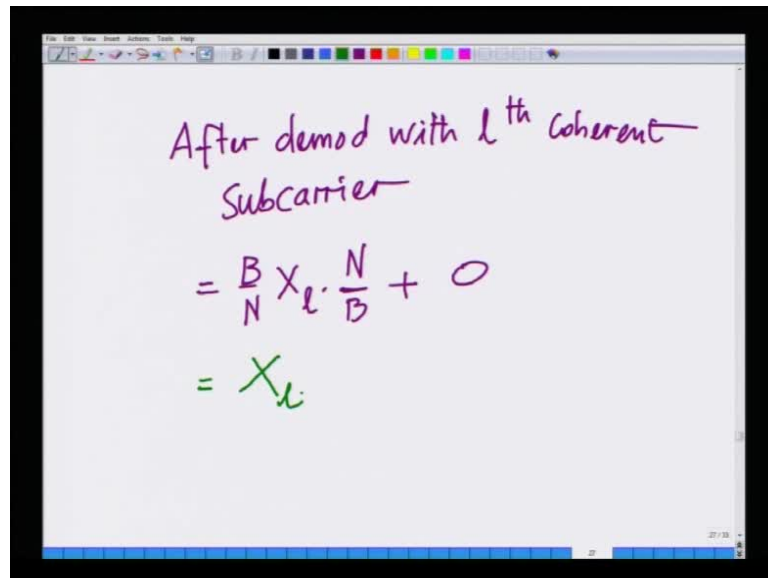 File Edit View Insert Actions Tools Help
B I
After demod with l th coherent
Subcarrier
= B/N X_l . N/B + 0
= X_l.
27 / 33
27